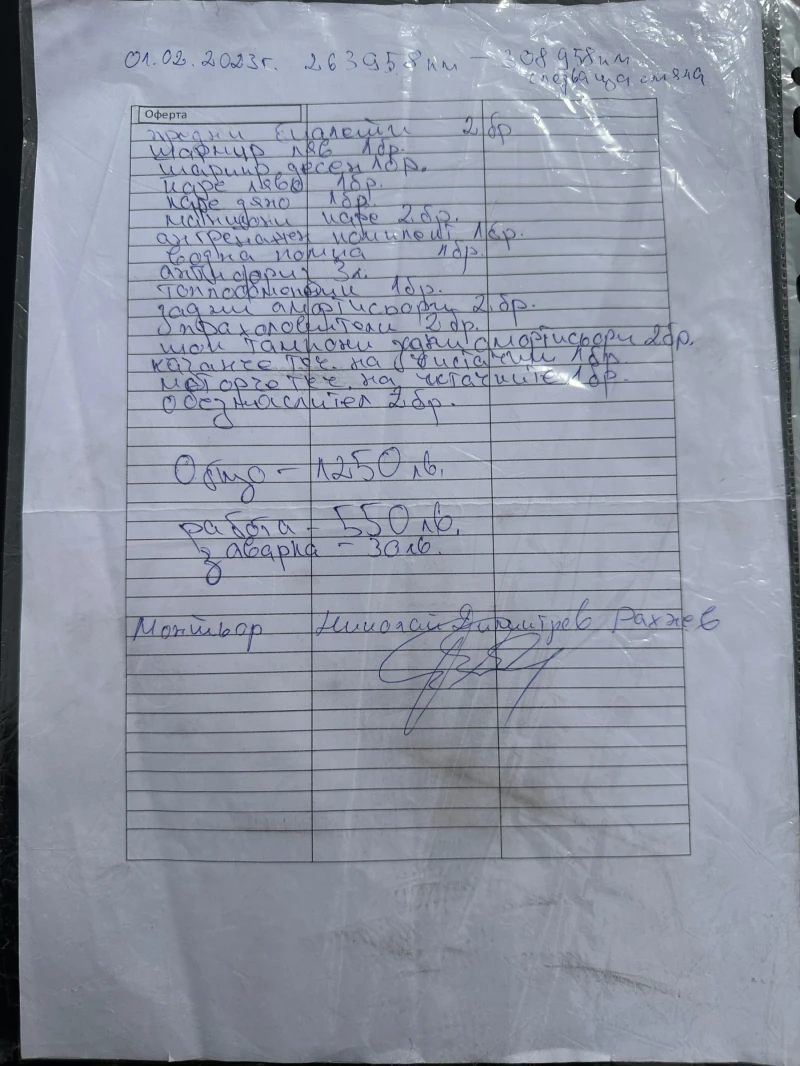 01.02.2023г. 263958км – 308958км
следваща смяна
Оферта
предни биалетки 2 бр
шарнир ляв 1бр.
шарнир десен 1бр.
каре ляво 1бр.
каре дяно 1бр.
маншони каре 2 бр.
ангренажен комплект 1бр.
водна помпа 1бр.
антифриз 3л.
топлообменник 1бр.
задни амортисьори 2 бр.
прахоловители 2 бр.
тампони задни амортисьори 2бр.
казанче теч. на чистачки 1бр
моторче теч. на чистачките 1бр.
обезмаслител 2бр.
Общо – 1250 лв.
работа – 550 лв.
заварка – 30лв.
Монтьор Николай Димитров